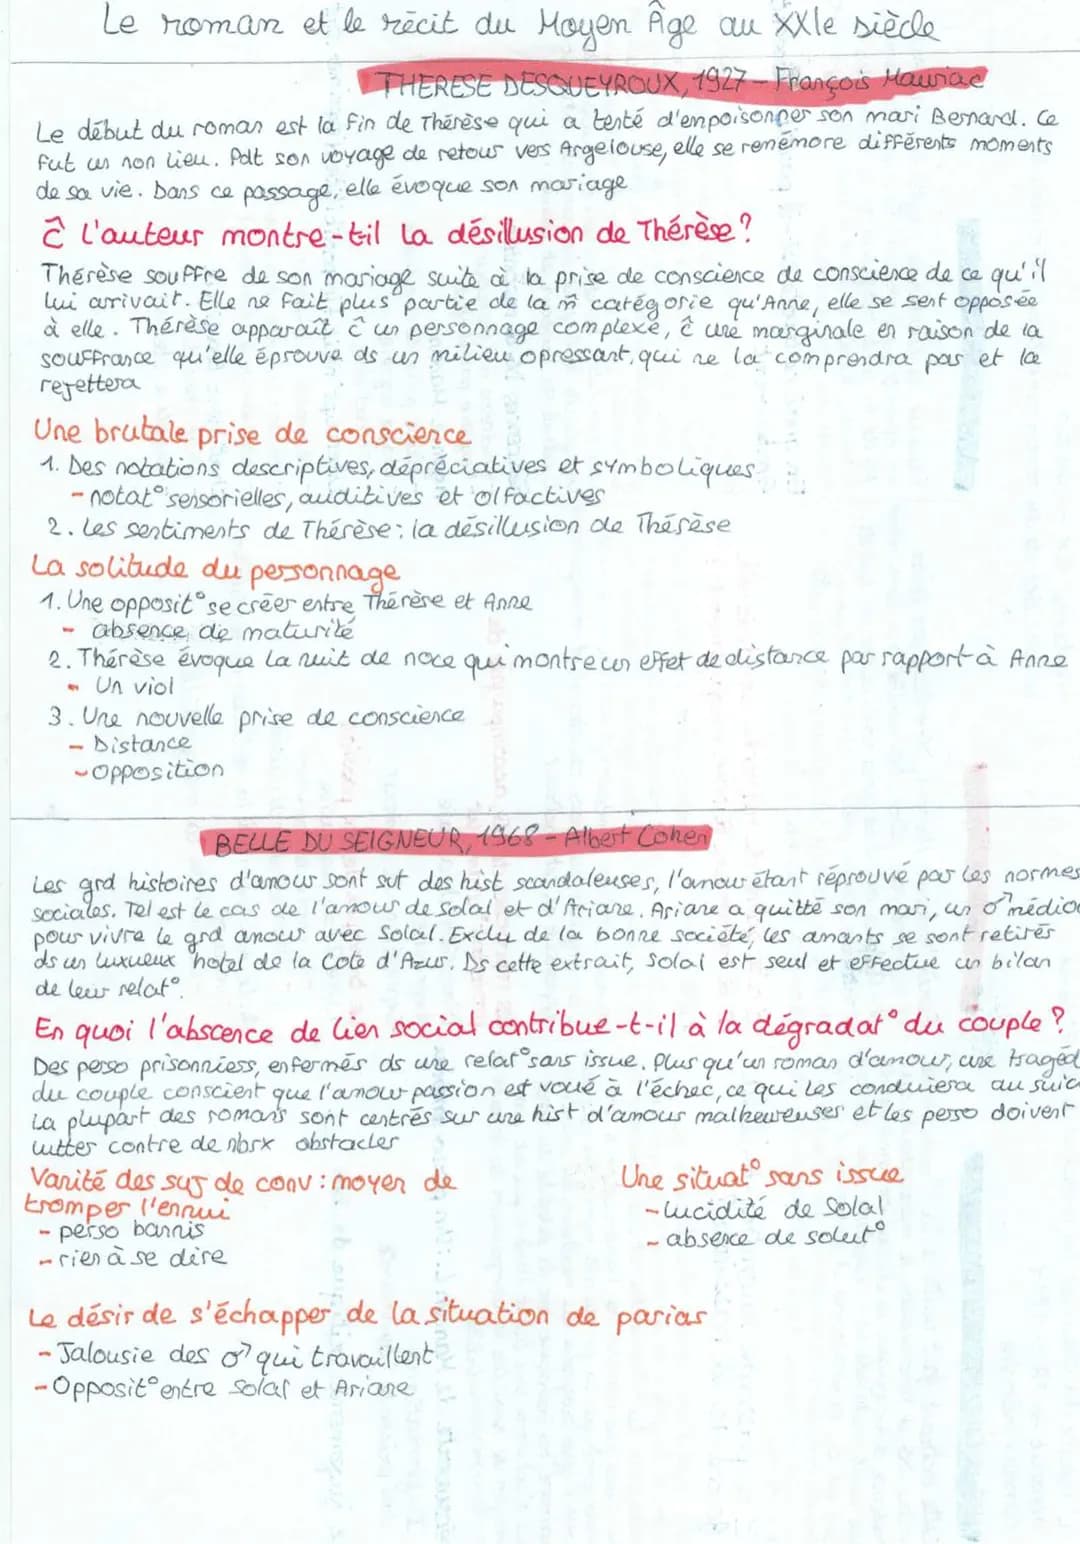 Le roman et le récit du Moyen Âge au XXIe siècle
THERESE DESQUEYROUX, 1927 - François Mauriac
Le début du roman est la fin de Thérèse qui a tenté d'empoisonner son mari Bernard. Ce
fut un non lieu. Pdt son voyage de retour vers Argelouse, elle se remémore différents moments
de sa vie. Dans ce passage, elle évoque son mariage
Ĉ l'auteur montre-til la désillusion de Thérèse?
Thérèse souffre de son mariage suite à la prise de conscience de conscience de ce qu'il
lui arrivait. Elle ne fait plus partie de la m̂ catégorie qu'Anne, elle se sent opposée
à elle. Thérèse apparaît ĉ un personnage complexe, ĉ une marginale en raison de la
souffrance qu'elle éprouve ds un milieu opressant, qui ne la comprendra pas et la
rejettera
Une brutale prise de conscience
1. Des notations descriptives, dépréciatives et symboliques
- notat° sensorielles, auditives et olfactives
2. Les sentiments de Thérèse: la désillusion de Thérèse
La solitude du personnage
1. Une opposit° se créer entre Thérèse et Anne
- absence de maturité
2. Thérèse évoque la nuit de noce qui montre un effet de distance par rapport à Anne
- Un viol
3. Une nouvelle prise de conscience
- Distance
- Opposition
BELLE DU SEIGNEUR, 1968 - Albert Cohen
Les grd histoires d'amour sont sut des hist scandaleuses, l'amour étant réprouvé par les normes
sociales. Tel est le cas de l'amour de Solal et d'Ariane. Ariane a quitté son mari, un ♂ médioc
pour vivre le grd amour avec Solal. Exclu de la bonne société, les amants se sont retirés
ds un luxueux hotel de la Cote d'Azur. Ds cette extrait, Solal est seul et effectue un bilan
de leur relat°.
En quoi l'abscence de lien social contribue-t-il à la dégradat° du couple?
Des perso prisonniers, enfermés ds une relat° sans issue. Plus qu'un roman d'amour, une tragéd
du couple conscient que l'amour passion est voué à l'échec, ce qui les conduiera au suic
La plupart des romans sont centrés sur une hist d'amour malheureuses et les perso doivent
lutter contre de nbrx obstacles
Vanité des suj de conv: moyen de
tromper l'ennui
- perso bannis
- rien à se dire
Une situat° sans issue
- lucidité de Solal
- absence de solut°
Le désir de s'échapper de la situation de parias
- Jalousie des ♂ qui travaillent
- Opposit° entre Solal et Ariane